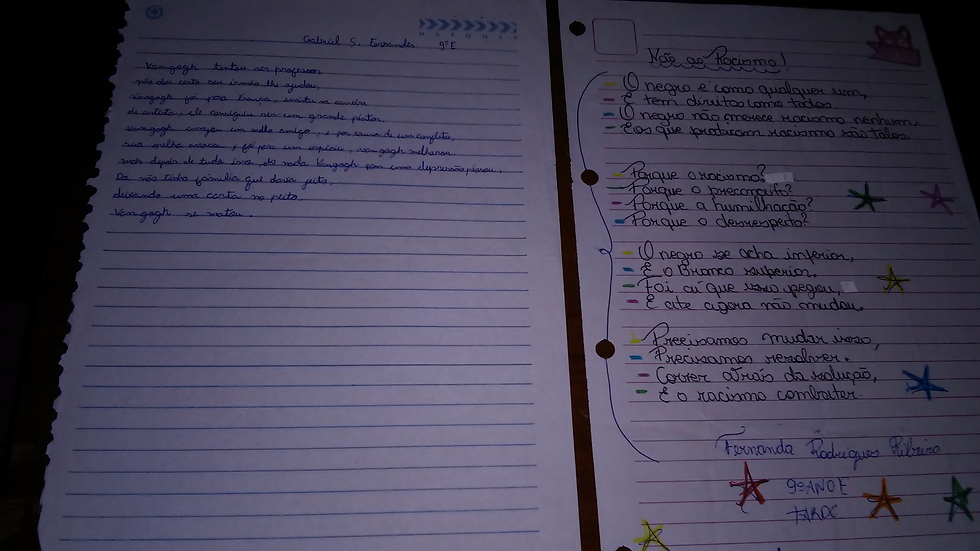 Gabriel S. Fernandes 9º E
Vangogh tentou ser professor
não deu certo seu irmão lhe ajudou,
Vangogh foi para França, insistiu na carreira
de artista, ele conseguiu ser um grande pintor.
Vangogh arranjou um velho amigo, e por causa de um conflito,
sua orelha arrancou, foi para um hospício, vangogh melhorou
mais depois de tudo isso, do nada Vangogh com uma depressão piorou,
Ele não tinha família que dava jeito,
deixando uma carta no peito
Van gogh se matou.
Não ao Racismo!
- O negro é como qualquer um,
- E tem direitos como todos.
- O negro não merece racismo nenhum,
- E os que praticam racismo são tolos.
- Porque o racismo?
- Porque o preconceito?
- Porque a humilhação?
- Porque o desrespeito?
- O negro se acha inferior,
- E o Branco superior.
- Foi aí que isso pegou,
- E ate agora não mudou.
- Precisamos mudar isso,
- Precisamos resolver.
- Correr atrás da solução,
- E o racismo combater.
Fernanda Rodrigues Ribeiro
9º ANO E
TARDE